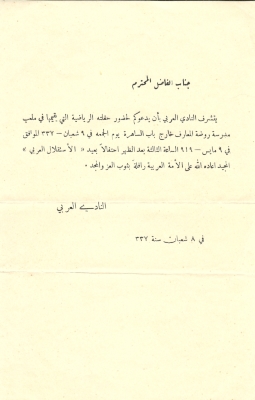 جناب الفاضل المحترم
يتشرف النادي العربي بأن يدعوكم لحضور حفلته الرياضية التي يقيمها في ملعب
مدرسة روضة المعارف خارج باب الساهرة يوم الجمعه في ٩ شعبان - ٣٣٧ الموافق
في ٩ مايس - ٩١٩ الساعة الثالثة بعد الظهر احتفالاً بعيد « الأستقلال العربي »
المجيد اعاده الله على الأمة العربية رافلة بثوب العز والمجد ·
النادي العربي
في ٨ شعبان سنة ٣٣٧